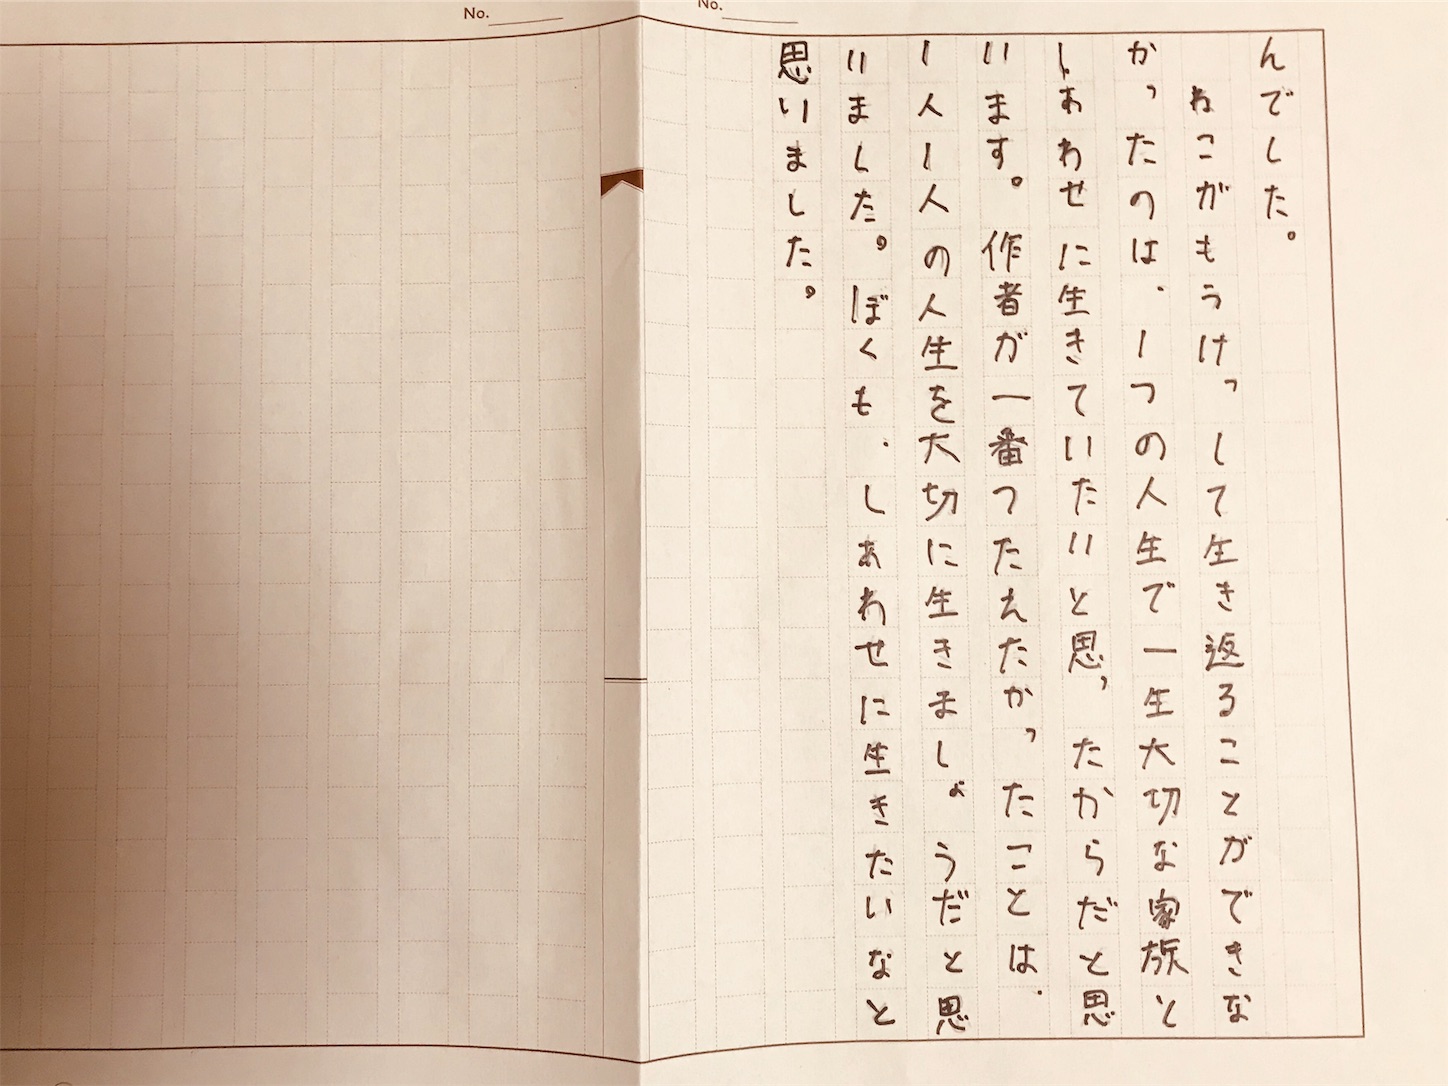 No.
No.
んでした。
ねこがもうけっして生き返ることができな
かったのは、1つの人生で一生大切な家族と
しあわせに生きていたいと思ったからだと思
います。作者が一番つたえたかったことは、
1人1人の人生を大切に生きましょうだと思
いました。ぼくも、しあわせに生きたいなと
思いました。